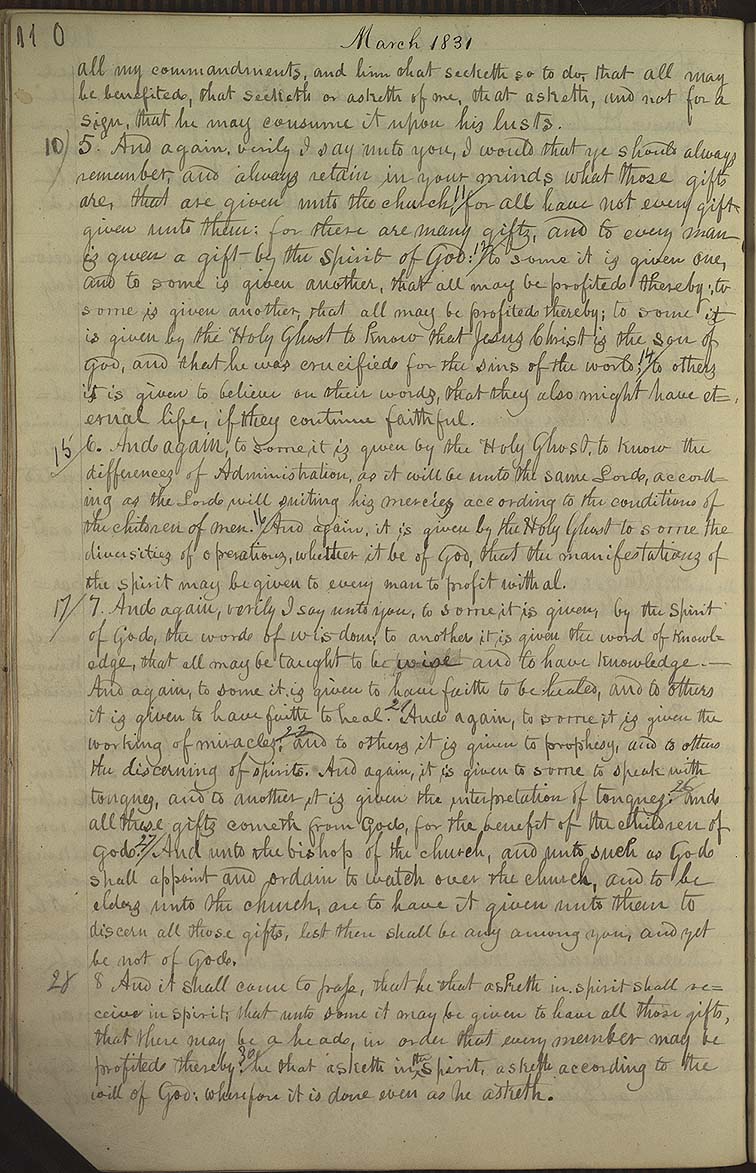 110 March 1831
all my commandments, and him that seeketh so to do, that all may
be benefited, that seeketh or asketh of me, that asketh, and not for a
sign, that he may consume it upon his lusts.
10) 5. And again, verily I say unto you, I would that ye should always
remember, and always retain in your minds what those gifts
are, that are given unto the church, 11/ for all have not every gift
given unto them: for there are many gifts, and to every man
is given a gift by the Spirit of God: 12/ to some it is given one,
and to some is given another, that all may be profited thereby; to
some is given another, that all may be profited thereby; to some it
is given by the Holy Ghost to Know that Jesus Christ is the son of
God, and that he was crucified for the sins of the world; 14/ to others
it is given to believe on their words, that they also might have et=
ernal life, if they continue faithful.
15/ 6. And again, to some, it is given by the Holy Ghost, to know the
differences of Administration, as it will be unto the same Lord, accord-
ing as the Lord will suiting his mercies according to the conditions of
the children of men. 16/ And again, it is given by the Holy Ghost to some the
diversities of operations, whether it be of God, that the manifestations of
the spirit may be given to every man to profit withal.
17/ 7. And again, verily I say unto you, to some it is given, by the Spirit
of God, the words of wisdom; to another it is given the word of Knowl=
edge, that all may be taught to be wise and to have knowledge. —
And again, to some it is given to have faith to be healed, and to others
it is given to have faith to heal. 21/ And again, to some it is given the
working of miracles; 22 and to others it is given to prophesy, and to others
the discerning of spirits. And again, it is given to some to speak with
tongues, and to another it is given the interpretation of tongues: 26 And
all these gifts cometh from God, for the benefit of the children of
God. 27/ And unto the bishop of the church, and unto such as God
shall appoint and ordain to watch over the church, and to be
elders unto the church, are to have it given unto them to
discern all those gifts, lest there shall be any among you, and yet
be not of God.
28 8 And it shall come to pass, that he that asketh in spirit shall re=
ceive in spirit; that unto some it may be given to have all those gifts,
that there may be a head, in order that every member may be
profited thereby: 30/ he that asketh in the spirit, asketh according to the
will of God: wherefore it is done even as he asketh.